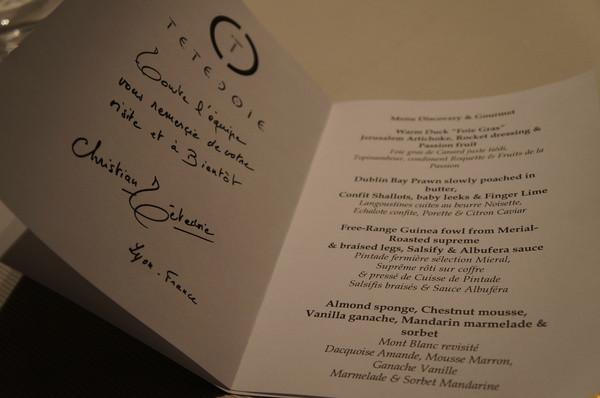 T
TETEDOIE
Toute l'équipe
vous remercie de votre
visite et à Bientôt
Christian Têtedoie
Lyon. France
Menu Discovery & Gourmet
Warm Duck "Foie Gras"
Jerusalem Artichoke, Rocket dressing &
Passion fruit
Foie gras de Canard juste tiédi,
Topinambour, condiment Roquette & Fruits de la
Passion
Dublin Bay Prawn slowly poached in
butter,
Confit Shallots, baby leeks & Finger Lime
Langoustines cuites au beurre Noisette,
Echalote confite, Porette & Citron Caviar
Free-Range Guinea fowl from Merial-
Roasted supreme
& braised legs, Salsify & Albufera sauce
Pintade fermière sélection Mieral,
Suprême rôti sur coffre
& pressé de Cuisse de Pintade
Salsifis braisés & Sauce Albuféra
Almond sponge, Chestnut mousse,
Vanilla ganache, Mandarin marmelade &
sorbet
Mont Blanc revisité
Dacquoise Amande, Mousse Marron,
Ganache Vanille
Marmelade & Sorbet Mandarine